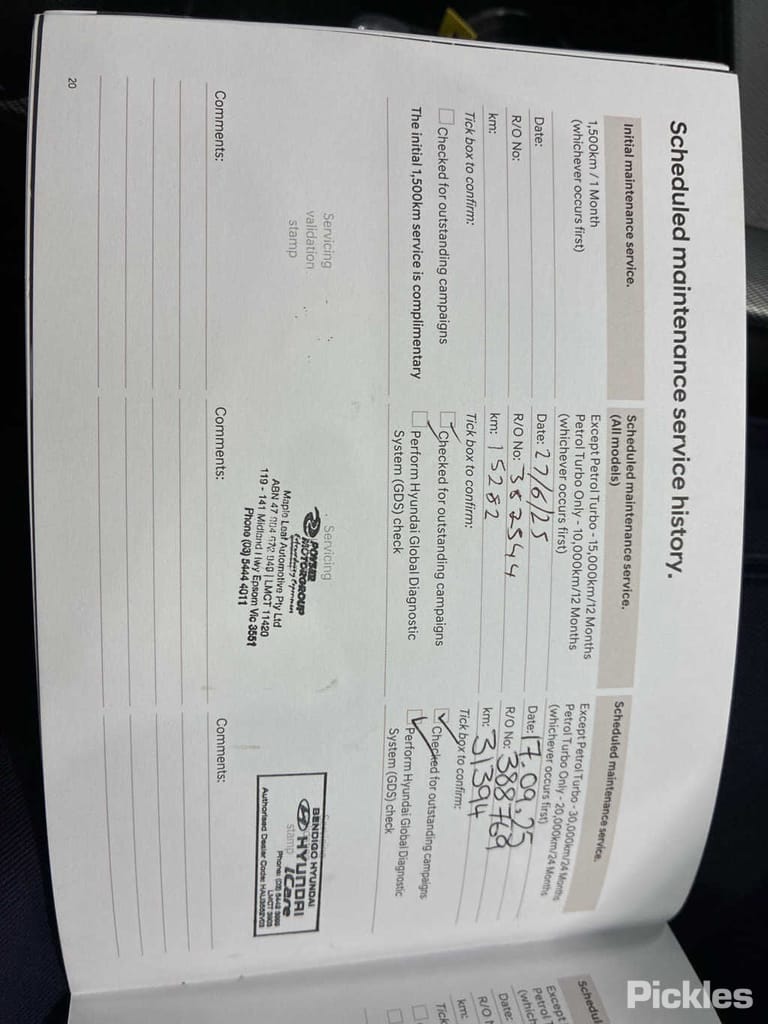 Scheduled maintenance service history.
Initial maintenance service.
1,500km / 1 Month
(whichever occurs first)
Date:
R/O No:
km:
Tick box to confirm:
Checked for outstanding campaigns
The initial 1,500km service is complimentary
Servicing
validation
stamp
Comments:
Scheduled maintenance service.
(All models)
Except Petrol Turbo - 15,000km/12 Months
Petrol Turbo Only - 10,000km/12 Months
(whichever occurs first)
Date: 27/6/25
R/O No: 382544
km: 15282
Tick box to confirm:
Checked for outstanding campaigns
Perform Hyundai Global Diagnostic
System (GDS) check
Servicing
POYSER
MOTORGROUP
Maple Leaf Automotive Pty Ltd
ABN 47 004 972 949 | LMCT 11420
119 - 141 Midland Hwy Epsom Vic 3551
Phone (03) 5444 4011
Comments:
Scheduled maintenance service.
Except Petrol Turbo - 30,000km/24 Months
Petrol Turbo Only - 20,000km/24 Months
(whichever occurs first)
Date: 17.09.25
R/O No: 388768
km: 31394
Tick box to confirm:
Checked for outstanding campaigns
Perform Hyundai Global Diagnostic
System (GDS) check
BENDIGO HYUNDAI
HYUNDAI
stamp iCare
LMCT
Authorised Dealer Code:
Comments:
20
Schedul
Except
Petrol T
(which
Date:
R/O N
km:
Tick
Pickles